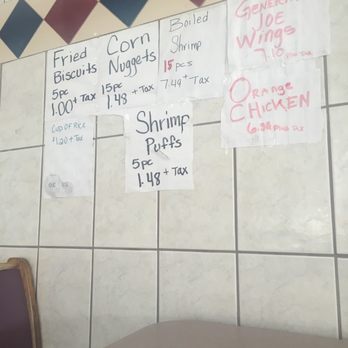 Fried
Biscuits
5pc
1.00 + Tax
Cup of Rice
$1.20 + Tax
Corn
Nuggets
15pc
1.48 + Tax
Boiled
Shrimp
15 pcs
7.49 + Tax
General
Joe
Wings
7.10 plus tax
Shrimp
Puffs
5pc
1.48 + Tax
Orange
Chicken
plus tax